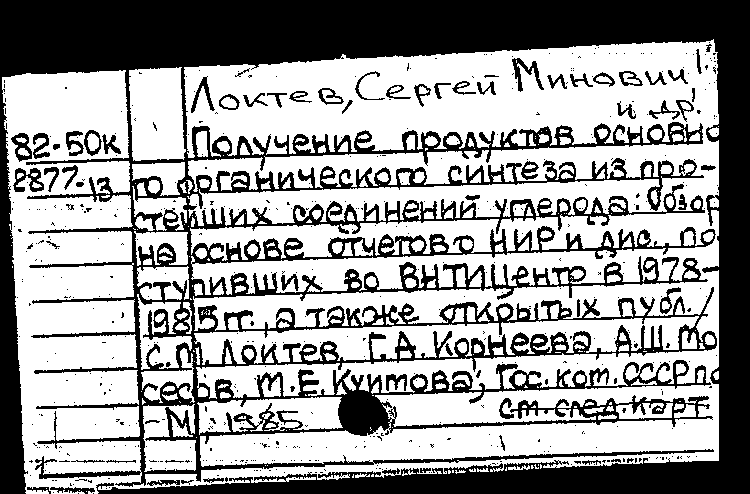 Локтев, Сергей Минович
и др.
82-50к Получение продуктов основно
2877-13 го органического синтеза из про-
стейших соединений углерода: Обзор
на основе отчетов о НИР и дис., по-
ступивших во ВНТИЦентр в 1978-
1985 гг., а также открытых публ. /
С.М. Локтев, Г.А. Корнеева, А.Ш. Мо
сесов, М.Е. Куимова; Гос. ком. СССР по
- М, 1985 см. след. карт